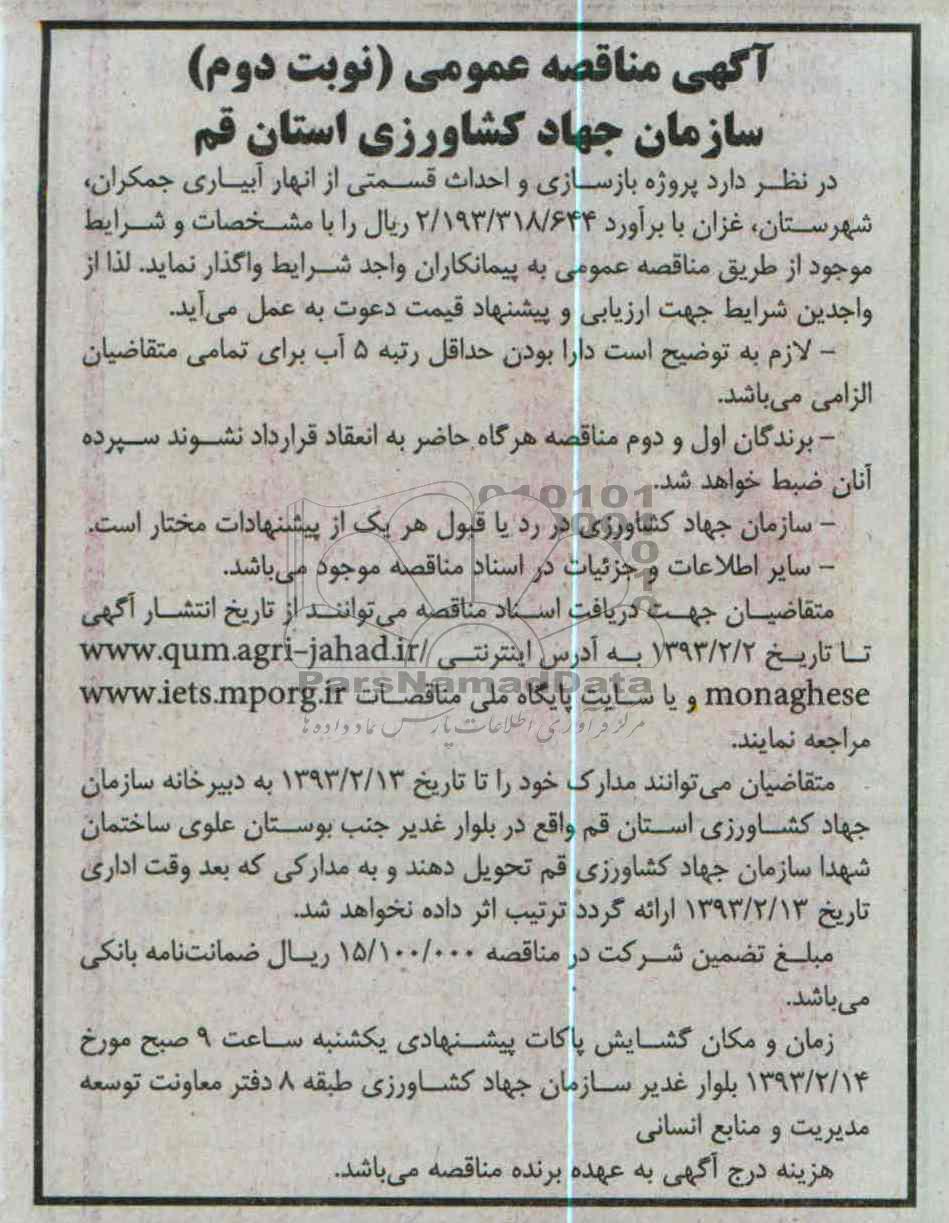 آگهی مناقصه عمومی (نوبت دوم)
سازمان جهاد کشاورزی استان قم
در نظر دارد پروژه بازسازی و احداث قسمتی از انهار آبیاری جمکران،
شهرستان، غزان با برآورد ۲/۱۹۳/۳۱۸/۶۴۴ ریال را با مشخصات و شرایط
موجود از طریق مناقصه عمومی به پیمانکاران واجد شرایط واگذار نماید. لذا از
واجدین شرایط جهت ارزیابی و پیشنهاد قیمت دعوت به عمل می‌آید.
- لازم به توضیح است دارا بودن حداقل رتبه ۵ آب برای تمامی متقاضیان
الزامی می‌باشد.
- برندگان اول و دوم مناقصه هرگاه حاضر به انعقاد قرارداد نشوند سپرده
آنان ضبط خواهد شد.
- سازمان جهاد کشاورزی در رد یا قبول هر یک از پیشنهادات مختار است.
- سایر اطلاعات و جزئیات در اسناد مناقصه موجود می‌باشد.
متقاضیان جهت دریافت اسناد مناقصه می‌توانند از تاریخ انتشار آگهی
تا تاریخ ۱۳۹۳/۲/۲ به آدرس اینترنتی www.qum.agri-jahad.ir/
monaghese و یا سایت پایگاه ملی مناقصات www.iets.mporg.ir
مراجعه نمایند.
متقاضیان می‌توانند مدارک خود را تا تاریخ ۱۳۹۳/۲/۱۳ به دبیرخانه سازمان
جهاد کشاورزی استان قم واقع در بلوار غدیر جنب بوستان علوی ساختمان
شهدا سازمان جهاد کشاورزی قم تحویل دهند و به مدارکی که بعد وقت اداری
تاریخ ۱۳۹۳/۲/۱۳ ارائه گردد ترتیب اثر داده نخواهد شد.
مبلغ تضمین شرکت در مناقصه ۱۵/۱۰۰/۰۰۰ ریال ضمانت‌نامه بانکی
می‌باشد.
زمان و مکان گشایش پاکات پیشنهادی یکشنبه ساعت ۹ صبح مورخ
۱۳۹۳/۲/۱۴ بلوار غدیر سازمان جهاد کشاورزی طبقه ۸ دفتر معاونت توسعه
مدیریت و منابع انسانی
هزینه درج آگهی به عهده برنده مناقصه می‌باشد.
ParsNamadData
مرکز فرآوری اطلاعات پارس نماد داده ها